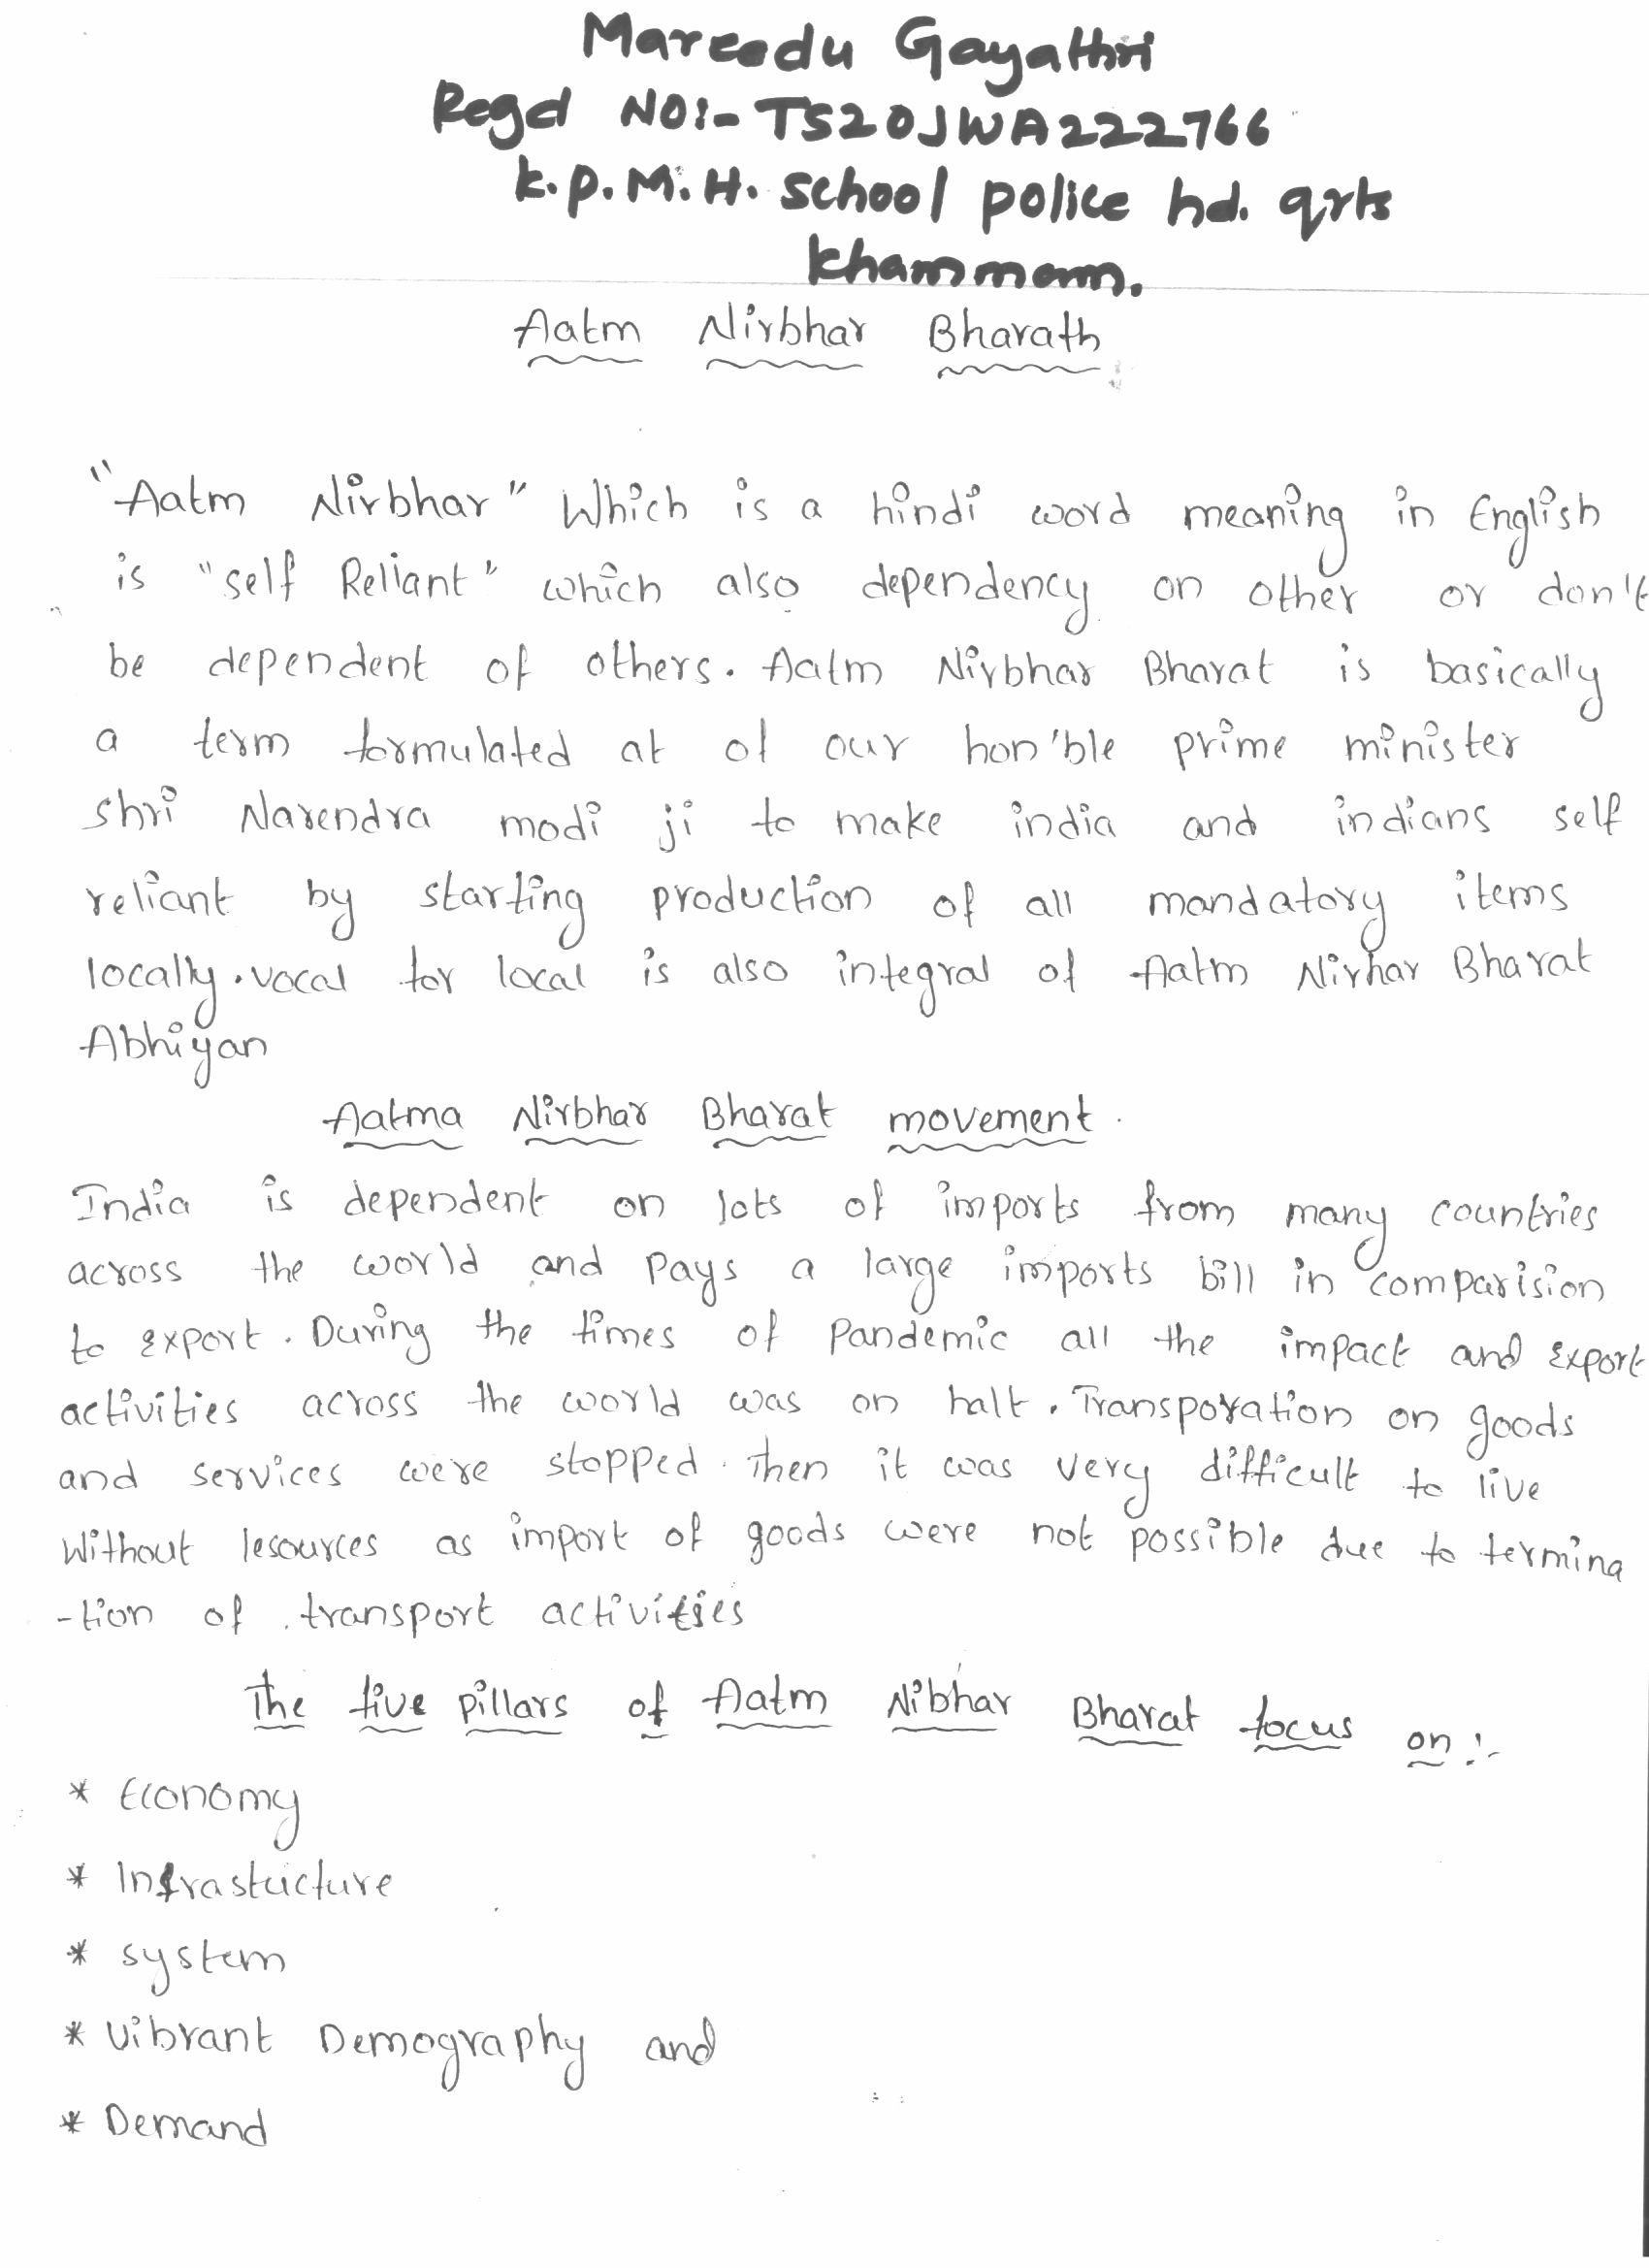 Mareedu Gayathri
Regd NO:- TS20JWA222766
K.P.M.H. School police hd. qrts
Khammam.
Aatm Nirbhar Bharath
"Aatm Nirbhar" Which is a hindi word meaning in English
is "self Reliant" which also dependency on other or don't
be dependent of others. Aatm Nirbhar Bharat is basically
a term formulated at of our hon'ble prime minister
shri Narendra modi ji to make india and indians self
reliant by starting production of all mandatory items
locally. vocal for local is also integral of Aatm Nirhar Bharat
Abhiyan
Aatma Nirbhar Bharat movement.
India is dependent on lots of imports from many countries
across the world and Pays a large imports bill in comparision
to export. During the times of Pandemic all the impact and export
activities across the world was on halt. Transporation on goods
and services were stopped. Then it was very difficult to live
Without lesources as import of goods were not possible due to termina
-tion of transport activities
The five pillars of Aatm Nibhar Bharat focus on :-
* Economy
* Infrastucture
* system
* Vibrant Demography and
* Demand